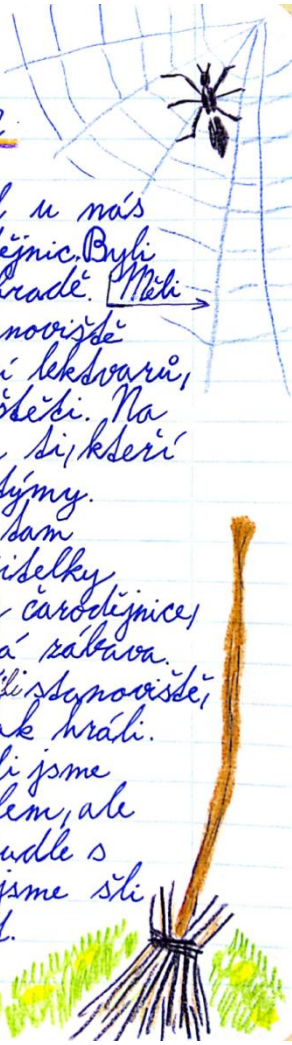 u nás
ějnic. Byli
hradě. Měli
noviště
í lektvarů,
štětí. Na
ti, kteří
týmy.
tam
itelky
čarodějnice,
á zábava.
ili stanoviště,
ak hráli.
li jsme
lem, ale
udle s
jsme šli